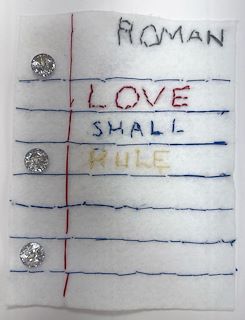 ROMAN
LOVE
SHALL
RULE